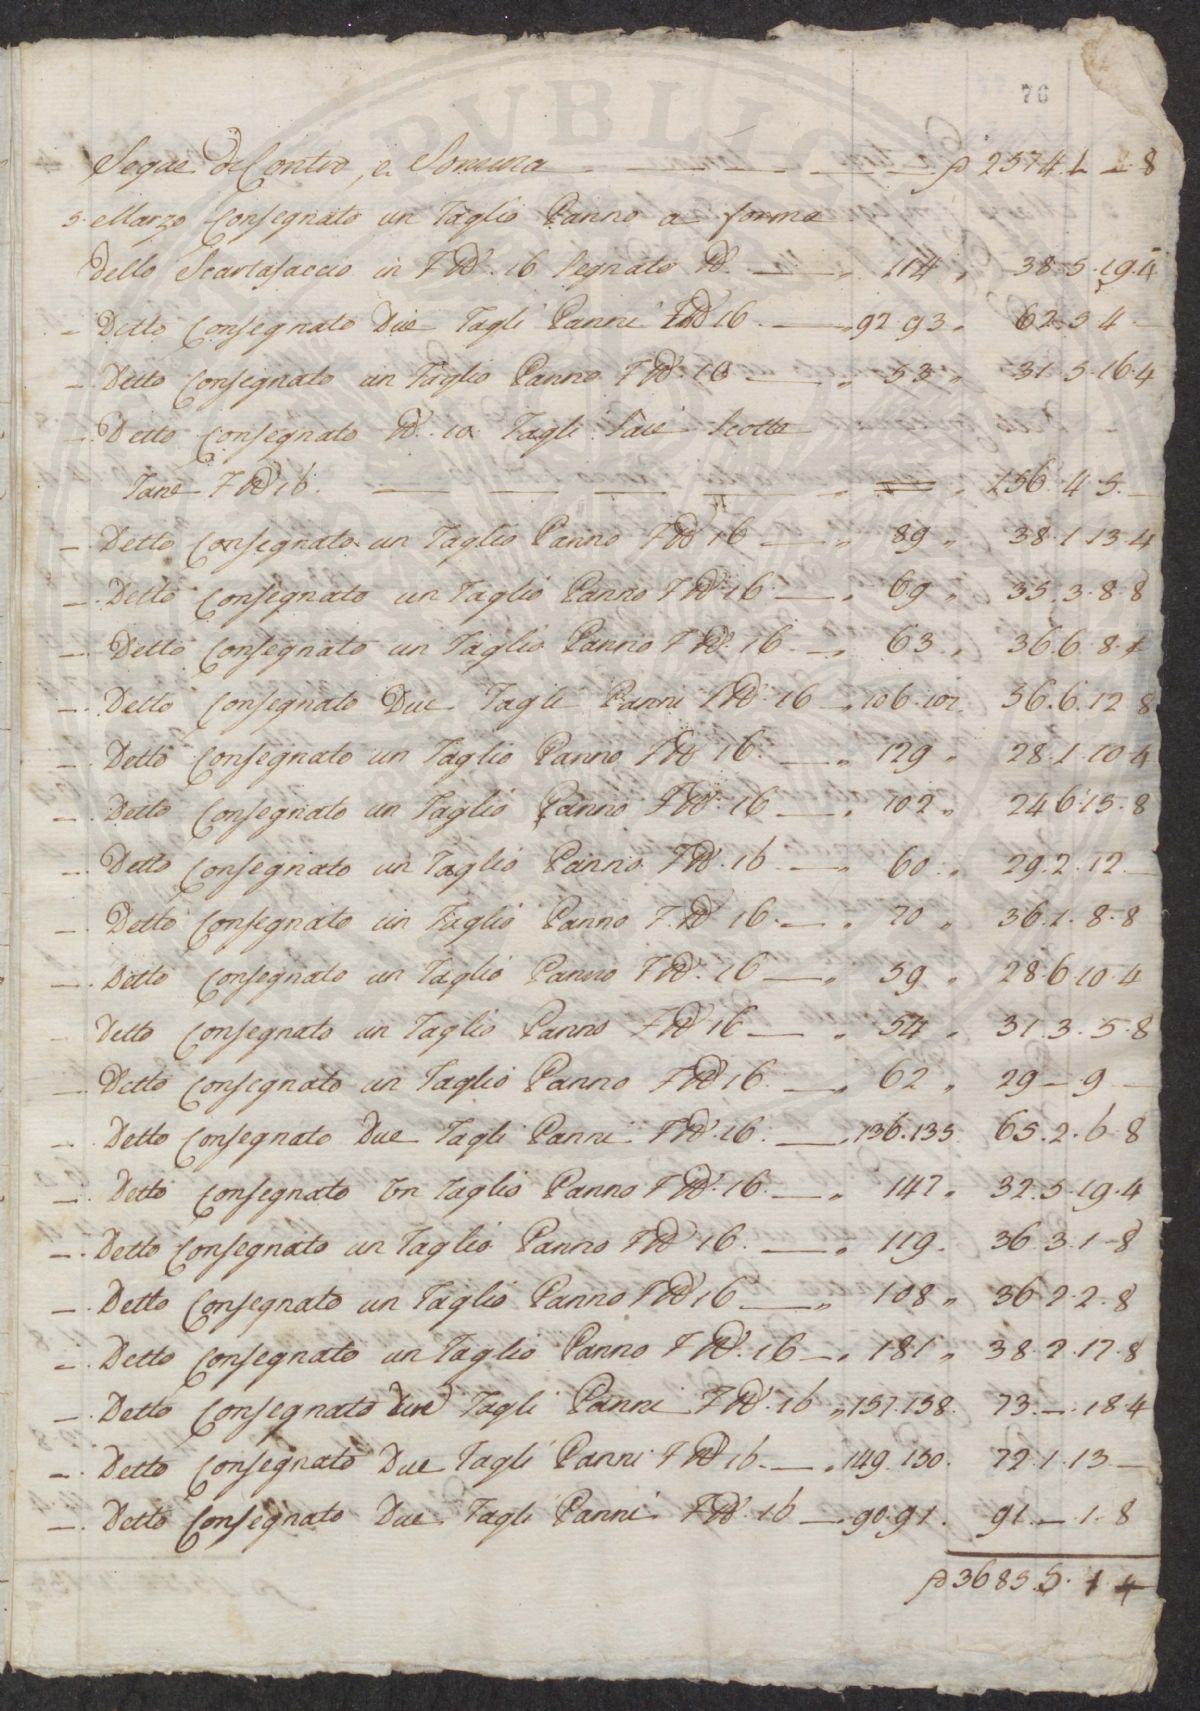 76
Segue di Contro, e Somma — — — 2574.1 — 8
5. Marzo Consegnato un Taglio Panno a forma
dello Scartafaccio in F No. 16 Segnato No. — „ 114 „ 38.5.19.4
— Detto Consegnato Due Tagli Panni F No 16 — „ 92.93 „ 62.5.4 —
— Detto Consegnato un Taglio Panno F No. 16 — „ 53 „ 31.5.16.4
— Detto Consegnato No. 10 Tagli Saie Scotto
Tane F No 16. — — — — „ „ 156.4.5. —
— Detto Consegnato un Taglio Panno F No 16 — „ 89 „ 38.1.13.4
— Detto Consegnato un Taglio Panno F No. 16 — „ 69 „ 35.3.8.8
— Detto Consegnato un Taglio Panno F No. 16 — „ 63 „ 36.6.8.4
— Detto Consegnato Due Tagli Panni F No. 16 — „ 106.107 56.6.12 8
— Detto Consegnato un Taglio Panno F No 16. — „ 129 „ 28.1.10.4
— Detto Consegnato un Taglio Panno F No. 16 — „ 102 „ 24 6.15.8
— Detto Consegnato un Taglio Panno F No. 16 — „ 60 „ 29.2.12. —
— Detto Consegnato un Taglio Panno F. No 16. — „ 70 „ 36.1.8.8
— Detto Consegnato un Taglio Panno F No. 16 — „ 59 „ 28.6.10.4
Detto Consegnato un Taglio Panno F No 16 — „ 54 „ 31.3.5.8
— Detto Consegnato un Taglio Panno F No 16. — „ 62 „ 29 — 9 —
— Detto Consegnato Due Tagli Panni F No. 16. — „ 136.135 65.2.6.8
— Detto Consegnato Un Taglio Panno F No. 16. — „ 147 „ 32.5.19.4
— Detto Consegnato un Taglio Panno F No 16. — „ 119. 36 3.1 8
— Detto Consegnato un Taglio Panno F No 16 — „ 108 „ 36 2.2.8
— Detto Consegnato un Taglio Panno F No. 16 — „ 181 „ 38 2.17.8
— Detto Consegnato due Tagli Panni F No. 16 „ 157.158. 73. — .18.4
— Detto Consegnato Due Tagli Panni F No 16. — „ 149.150. 72.1.13 —
— Detto Consegnato Due Tagli Panni F No. 16 — „ 90.91. 91. — 1.8
3685 5.1 4